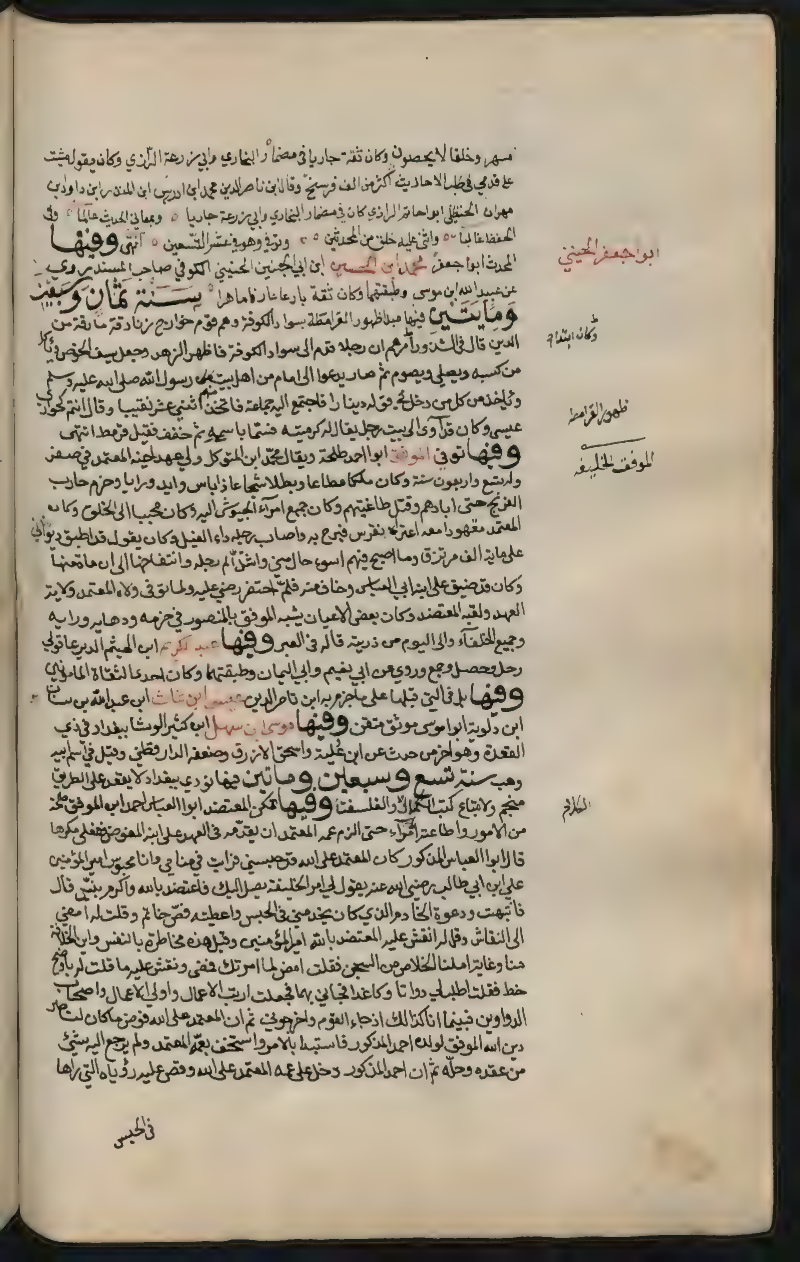 مسهر وخلقا لا يحصون وكان ثقة جاريا في مضمار البخاري وابي زرعة الرازي وكان يقول مشيت
على قدمي في طلب الاحاديث اكثر من الف فرسخ وقال ابن ناصر الدين محمد ابن ادريس ابن المنذر ابن داود بن
مهران الحنظلي ابو حاتم الرازي كان في مضمار البخاري وابي زرعة جاريا وبمعاني الحديث عالما وفي
الحفظ غالبا واثنى عليه خلق من المحدثين وتوفي وهو في عشر التسعين انتهى وفيها
المحدث ابو اجعفر محمد ابن الحسين ابن ابي الحنين الحنيني الكوفي صاحب المسند روى
عن عبيد الله ابن موسى وطبقتها وكان ثقة بارعا عارفا ماهرا سنة ثمان وسبعين
ومايتين فيها مبدا ظهور القرامطة بسواد الكوفة وهم قوم خوارج زنادقة مارقة من
الدين قال في الشذور امرهم ان رجلا قدم الى سواد الكوفة فاظهر الزهد وجعل يسف الخوص فياكل
من كسبه ويصلي ويصوم ثم صار يدعوا الى امام من اهل بيت رسول الله صلى الله عليه وسلم
وياخذ من كل من دخل في قوله دينارا فاجتمع اليه جماعة فاتخذ منهم اثني عشر نقيبا وقال انتم كحواري
عيسى وكان قد آوى الى بيت رجل يقال له كرميته فتسما باسمه ثم خفف فقيل قرمط انتهى
وفيها توفي الموفق ابو احمد طلحة ويقال محمد ابن المتوكل ولي عهد اخيه المعتمد في صفر
وله تسع واربعون سنة وكان ملكا مطاعا وبطلا شجاعا ذا باس وايد وراى وحزم حارب
الزنج حتى ابادهم وقتل طاغيتهم وكان جميع امر الجيوش اليه وكان محببا الى الخلق وكان
المعتمد مقهورا معه اعتراه نقرس فبرح به واصاب رجله داء الفيل وكان يقول قد اطبق ديواني
على ماية الف مرتزق وما اصبح فيهم اسوء حال مني واشتد الم رجله وانتفاخها الى ان مات منها
وكان قد ضيق على ابنه ابي العباس وخاف منه فلما احتضر رضي عليه ولما توفي ولاه المعتمد ولاية
العهد ولقبه المعتضد وكان بعض الاعيان يشبه الموفق بالمنصور في حزمه ودهايه ورايه
وجميع الخلفاء والى اليوم من ذريته قاله في العبر وفيها عبد الكريم ابن الهيثم الديرعاقولي
رحل وحصل وجمع وروى عن ابي نعيم وابي اليمان وطبقتهما وكان احد الثقاة المامونين
وفيها بل في التي قبلها على ما جزم به ابن ناصر الدين عيسى ابن غاث ابن عبد الله بن سنان
ابن دلوية ابو موسى موثق متقن وفيها موسى ابن سهل ابن كثير الوشا ببغداد في ذي
القعدة وهو اخر من حدث عن ابن علية واسحق الازرق وضعفه الدارقطني وقيل في اسم ابيه
وهب سنة تسع وسبعين ومايتين فيها نودي ببغداد لا يقعد على الطريق
منجم ولا تباع كتب الكلام والفلسفة وفيها تمكن المعتضد ابو العباس احمد ابن الموفق طلحة
من الامور واطاعة الامراء حتى الزم عمه المعتمد ان يقدمه في العهد على ابنه المفوض ففعل مكرها
قال ابو العباس المذكور كان المعتمد على الله قد حبسني فرايت في منامي وانا محبوس امير المؤمنين
علي ابن ابي طالب رضي الله عنه يقول لي امر الخليفة يصل اليك فاعتضد بالله واكرم بنيي قال
فانتبهت ودعوة الخادم الذي كان يخدمني في الحبس واعطيته فص خاتم وقلت له امض
الى النقاش وقل له انقش عليه المعتضد بالله امير المؤمنين فقال هذه مخاطرة بالنفس واين الخلافة
منا وغاية املنا الخلاص من السجن فقلت امض لما امرتك فمضى ونقش عليه ما قلت له باوضح
خط فقلت اطلب لي دواتا وكاغدا فجاني بهما فجعلت ارتب الاعمال واولي الاعمال واصحاب
الدواوين فبينما انا كذالك اذ جاء القوم واخرجوني ثم ان المعتمد على الله فوض ما كان لناصر
دين الله الموفق لولده احمد المذكور فاستبد بالامر واستخف بعمه المعتمد ولم يرجع اليه بشيء
من عقده وحله ثم ان احمد المذكور دخل على عمه المعتمد على الله وقص عليه رؤياه التي راها
في الحبس
ابو اجعفر الحنيني
وكان ابتداء
ظهور القرامطه
الموفق الخليفه
الكلام